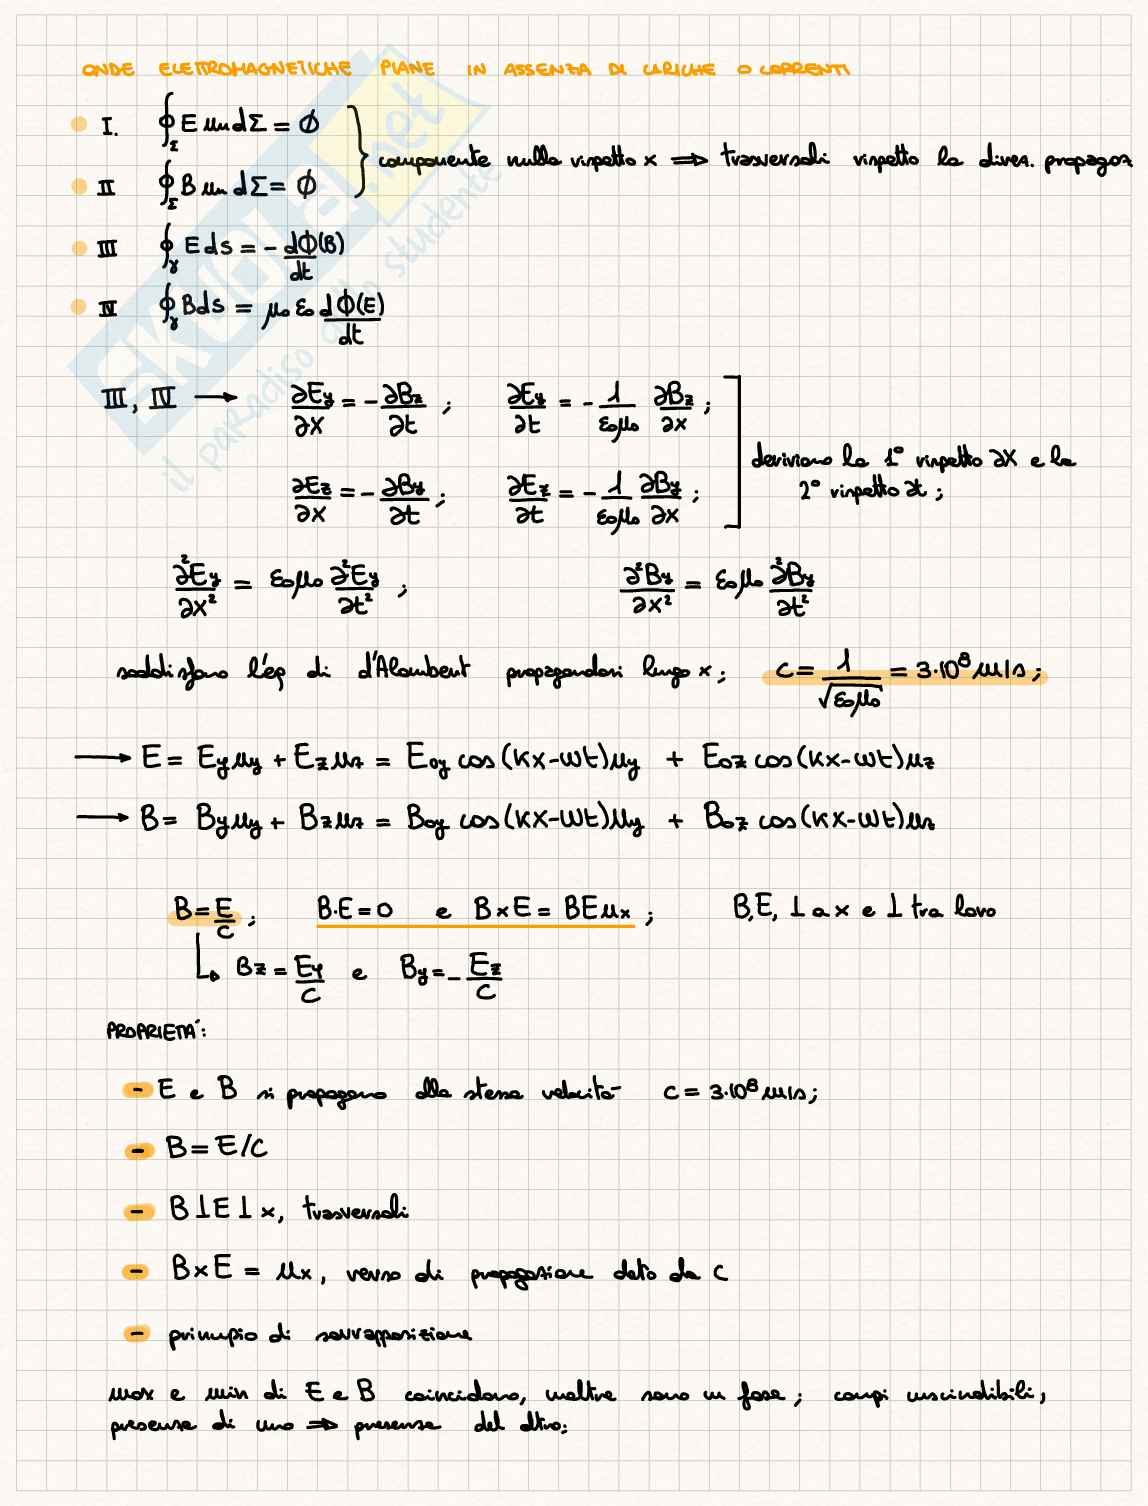 ONDE ELETTROMAGNETICHE PIANE IN ASSENZA DI CARICHE O CORRENTI
I. ∮_Σ E u_n dΣ = ϕ
II ∮_Σ B u_n dΣ = ϕ
componente nulla rispetto x ⟹ trasversali rispetto la direz. propagaz
III ∮_γ E ds = - dΦ(B)/dt
IV ∮_γ B ds = μ₀ ε₀ dΦ(E)/dt
III, IV → ∂Ey/∂x = - ∂Bz/∂t ; ∂Ey/∂t = - 1/ε₀μ₀ ∂Bz/∂x ;
∂Ez/∂x = - ∂By/∂t ; ∂Ez/∂t = - 1/ε₀μ₀ ∂By/∂x ;
deriviamo la 1° rispetto ∂x e la
2° rispetto ∂t ;
∂²Ey/∂x² = ε₀μ₀ ∂²Ey/∂t² ; ∂²By/∂x² = ε₀μ₀ ∂²By/∂t²
soddisfano l'eq di d'Alambert propagandosi lungo x ; c = 1/√ε₀μ₀ = 3·10⁸ m/s ;
→ E = Ey uy + Ez uz = E₀y cos (kx-wt) uy + E₀z cos (kx-wt) uz
→ B = By uy + Bz uz = B₀y cos (kx-wt) uy + B₀z cos (kx-wt) uz
B = E/c ; B·E = 0 e B×E = BE ux ; B, E, ⊥ a x e ⊥ tra loro
↳ Bz = Ey/c e By = - Ez/c
PROPRIETA':
- E e B si propagano alla stessa velocità c = 3·10⁸ m/s ;
- B = E/c
- B ⊥ E ⊥ x, trasversali
- B×E = ux, verso di propagazione dato da c
- principio di sovrapposizione
max e min di E e B coincidono, inoltre sono in fase ; campi inscindibili,
presenza di uno ⟹ presenza del altro.
SKUOLA.net
il paradiso dello studente